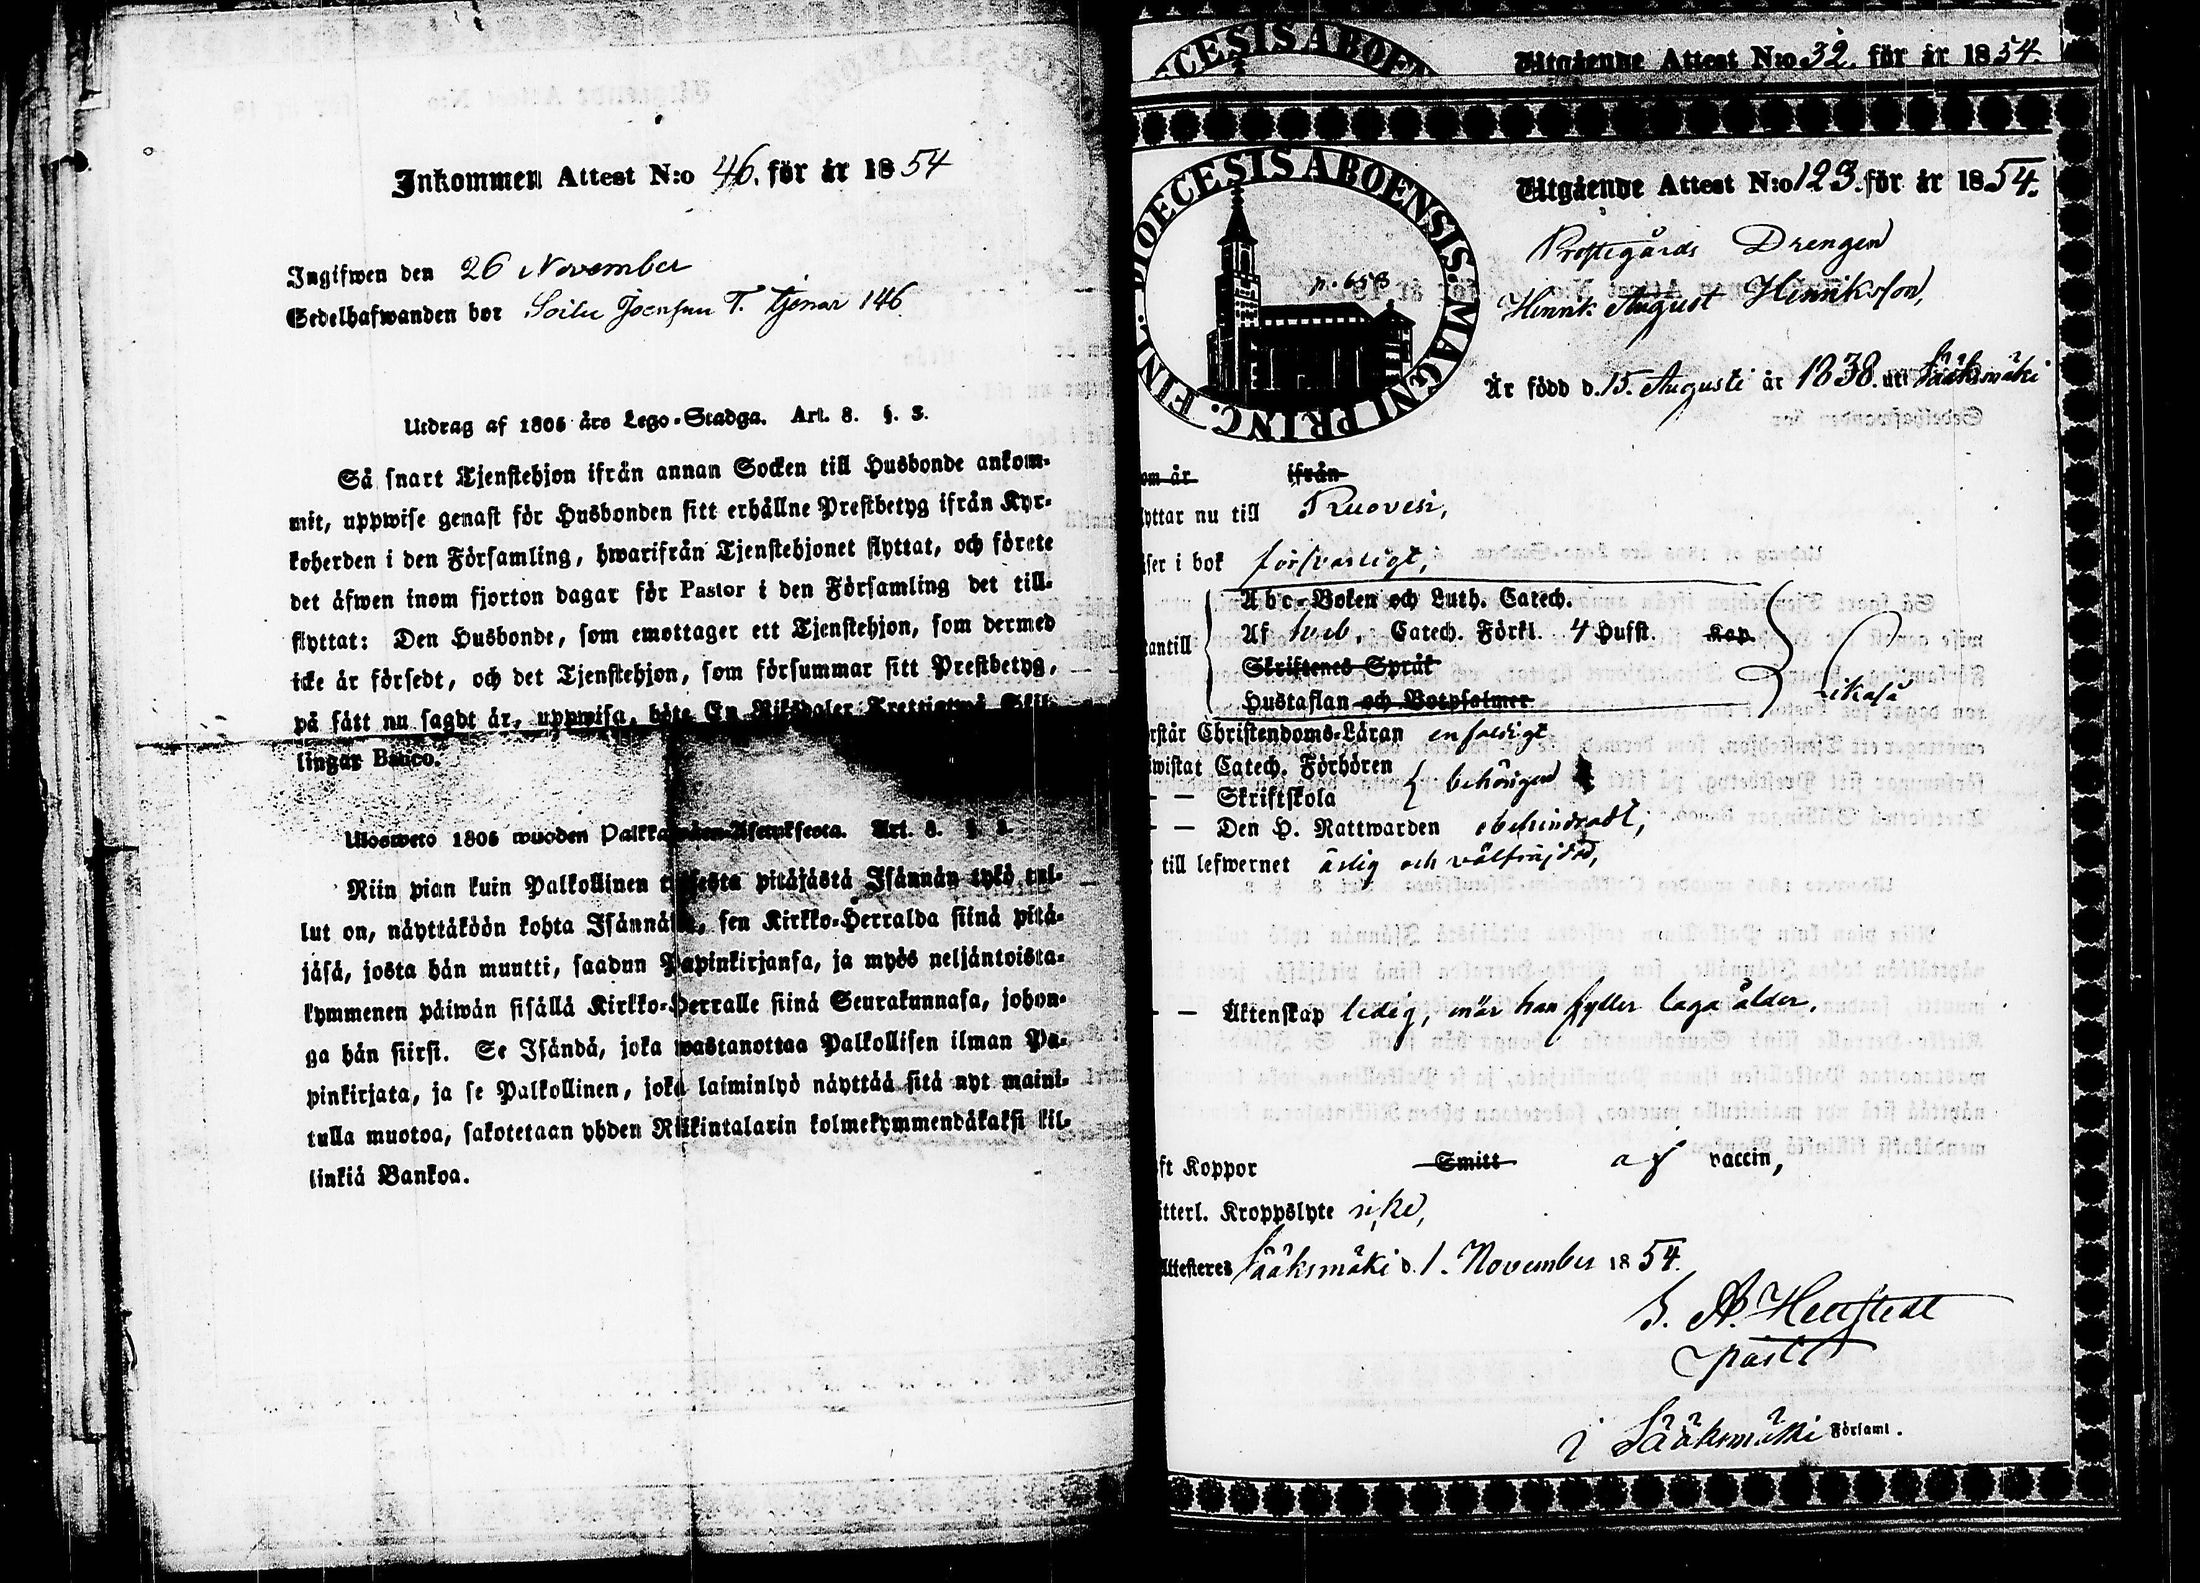 Inkommen Attest N:o 46. för år 1854
Ingifwen den 26 November
Sedelhafwanden bor T. tjenar 146.
Utdrag af 1805 års Lego-Stadga. Art. 8. §. 3.
Så snart Tjenstehjon ifrån annan Socken till Husbonde ankom-
mit, uppwise genast för Husbonden sitt erhållne Prestbetyg ifrån Kyr-
koherden i den Församling, hwarifrån Tjenstehjonet flyttat, och förete
det äfwen inom fjorton dagar för Pastor i den Församling det till-
flyttat: Den Husbonde, som emottager ett Tjenstehjon, som dermed
icke är försedt, och det Tjenstehjon, som försummar sitt Prestbetyg,
på sätt nu sagdt är, uppwisa, böte En Riksdaler Trettiotwå Skil-
lingar Banco.
Uloswето 1805 wuoden Art. 8. §. 3.
Niin pian kuin Palkollinen toisesta pitäjästä Isännän tykö tul-
lut on, näyttäköön kohta Isännälle, sen Kirkko-Herralda siinä pitä-
jäsä, josta hän muutti, saadun Papinkirjansa, ja myös neljäntoista-
kymmenen päiwän sisällä Kirkko-Herralle siinä Seurakunnasa, johon-
ga hän siirsi. Se Isändä, joka wastanottaa Palkollisen ilman Pa-
pinkirjata, ja se Palkollinen, joka laiminlyö näyttää sitä nyt maini-
tulla muotoa, sakotetaan yhden Riikintalarin kolmekymmendäkaksi kil-
linkiä Bankoa.
DIOECESIS ABOEN
Utgående Attest N:o 32. för år 1854.
DIOECESIS ABOENSIS. MAGNI PRINC. FINL.
p. 658
Utgående Attest N:o 123. för år 1854.
Prostegårds Drengen
Henrik August Henriksson,
Är född d. 15. Augusti år 1838. uti Sääksmäki
om är ifrån
yttar nu till Ruovesi,
ser i bok försvarligt,
Abc-Boken och Luth. Catech.
antill Af Catech. Förkl. 4 Hufst. Kap
Skriftenes Språk
Hustaflan och Botpsalmer
rstår Christendoms-Läran enfaldigt
wistat Catech. Förhören
— — Skriftskola behörigen
— — Den H. Nattwarden obehindradt,
till lefwernet ärlig och välfrejdad,
— — Äktenskap ledig, när han fyller laga ålder.
ft Koppor Smitt af vaccin,
itterl. Kroppslyte icke,
Attesteres Sääksmäki d. 1. November 1854.
A. Hellstedt
i Sääksmäki Församl.